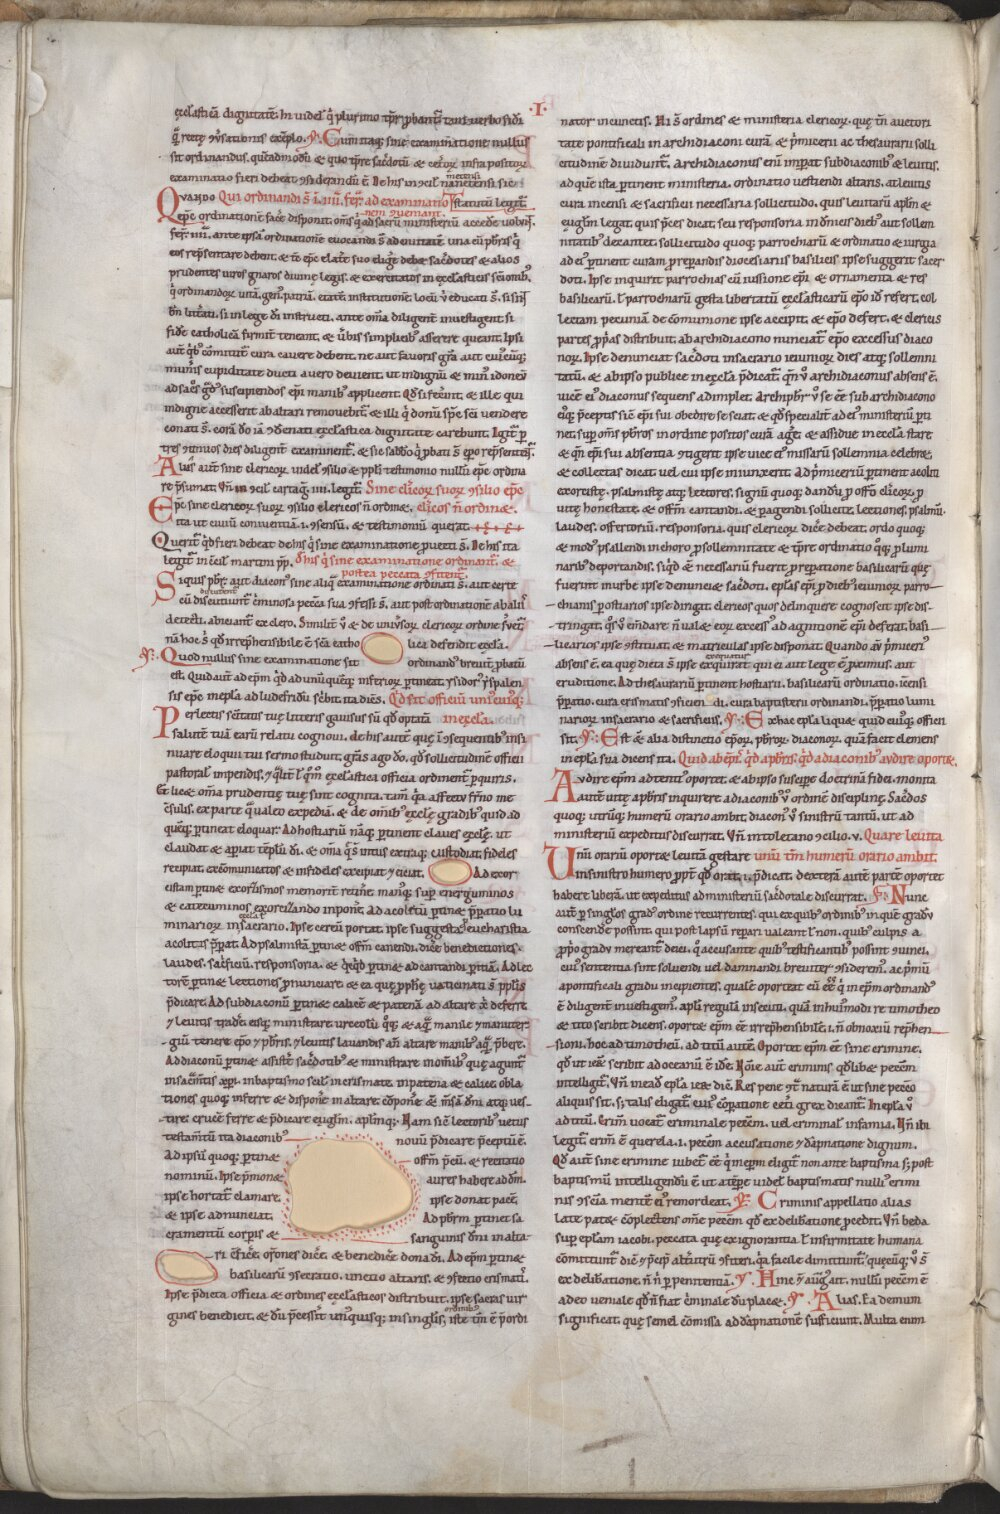 ·I·
ęcclasticā dignitatē. In videl᷑ q̇ plurimo tp̄r ꝓbant᷑
q̄ recte ꝯv̓sationis exēplo. Cum itaq; sine examinatione nullus
sit ordinandus, quēadmodū & quo tp̄re sac̄dotū & cet̓oꝝ infra positoꝝ
examinatio fieri debeat ꝯsiderandū ē. De his in ꝯcil᷑ nanetensi sic
Quando Qui ordinandi s̄ ad examinatio
nem ꝯveniant. statutū legit᷑
epc̄ ordinationē fac̓e disponit. om̄s q̇ ad sacrū ministeriū accede volūt.
fer̄. iiii. ante ipsā ordinationē evocandi s̄ ad civitatē. una cū p̄bris q̇
eos rep̄sentare debent. & tc̄ epc̄ e latere suo elig̓e debet sac̄dotes & alios
prudentes viros gnaros divinę legis. & exercitatos in ęcclasticis
q̇ ordinandoꝝ vitā. gen᷒. patriā. etatē. institutionē. locū ubi educati s̄. si sint
bn̄ litt̓ati. si in lege dn̄i instructi. ante om̄a diligent᷑ investigent si
fidē catholicā firmit᷑ teneant. & v̓bis simplicib᷒ asserere queant. Ipsi
aut̄ qb᷒ cōmittit᷑ cura cavere debent. ne aut favoris gr̄a aut cui᷒cūq;
mun̓is cupiditate ducti a vero devient. ut indignū & min᷒ idoneū
ad sac̓os gd᷒ suscipiendos epi manib᷒ applicent. Qd̄ si fec̓int. & ille qui
indigne accesserit ab altari removebit᷑. & illi q̇ donū sp̄c sc̄i vendere
conati s̄. corā dō iā ꝯdēnati ęcclastica dignitate carebunt. Igit᷑ p
tres ꝯtinuos dies diligent᷑ examinent᷑. & sic sabb̄o q̇ ꝓbati s̄ epo rep̄sentent᷑.
Alius aut̄ sine clericoꝝ videl᷑ ꝯsilio & ppl̄i testimonio nullū epc̄ ordina
re p̄sumat. Vn̄ in ꝯcil᷑ cartaḡ. iiii. legit᷑. Sine cl̄icoꝝ suoꝝ ꝯsilio epc̄
Epc̄ sine clericoꝝ suoꝝ ꝯsilio clericos n̄ ordinet. cl̄icos n̄ ordinet.
ita ut civiū conviventiā .i. ꝯsensū. & testimoniū querat.
Querit᷑ qd̄ fieri debeat de his q̇ sine examinatione pvecti s̄. De his ita
legit᷑ in ꝯcil᷑ martini pp̄. De his q̇ sine examinatione ordinant᷑. &
postea peccata ꝯfitent᷑.
Si quis p̄br aut diacon᷒ sine aliq̄ examinatione ordinati s̄. aut certe
cū discutiunt᷑ c̓minosa peccā sua ꝯfessi s̄. aut post ordinationē ab aliis
detecti. abiciant᷑ ex clero. Similit᷑ v̓ & de univ̓soꝝ clericoꝝ ordine s̓vet᷑.
nā hoc s̄ qd̄ irrep̄hensibile ē sc̄a catho lica defendit ęccla.
Quod nullus sine examinatione sit ordinand᷒ brevit᷑ ꝓbatū
est. Quid aut̄ ad epm̄ qd̄ ad unūquēq; inferioꝝ ptineat. ysidor᷒ yspalen
sis epc̄ in epla ad ludefridū sc̓bit ita dicēs. Qd̄ sit officiū uni᷒cui᷒q;
Perlectis sc̄itatis tuę litteris gavisus sū qd̄ optatā in ęccla.
salutē tuā earū relatu cognovi. de his autē quę ı̄ ꝯsequentib᷒ insi
nuare eloqui tui sermo studuit. gr̄as ago dō. qd̄ sollicitudinē officii
pastoral᷑ impendis. & qlit᷑ l q̄m ęcclastica officia ordinent᷑ pquiris.
Et licet om̄a prudentię tuę sint cognita. tam̄ qa affectu fr̄no me
cōsulis. ex parte qua valeo expediā. & de om̄ib᷒ ęcclę gradib᷒ quid ad
quēq; ptineat eloquar. Ad hostiariū nāq; ptinent claves ęcclę. ut
claudat & apiat tēplū dn̄i. & om̄a q̄ s̄ intus extraq; custodiat. fideles
recipiat. excōmunicatos & infideles excipiat ꝯcitat. Ad exor
cistam ptinet exorcismos memorit᷑ retin̓e. manusq; sup̓ energuminos
& catecuminos exorcizando inpon̓e. Ad acolitū ptinet p̄paratio lu
minarioꝝ in sac̓ario. Ipse cereū portat. ipse suggesta p eucharistia
acolitus p̄parat. Ad psalmistā ptinet offm̄ canendi. dic̓e benedictiones.
laudes. sac̓ficiū. responsoria. & qcqd̄ ptinet ad cantandi p̓itiā. Ad lec
torē ptinet lectiones pnuntiare. & ea quę pphetę vaticinati s̄ ppl̄is
p̄dicare. Ad subdiaconū ptinet calicē & patenā ad altare xp̄i deferre
& levitis trad̓e. eisq; ministrare. urceolū q̄q; & aquā manile & manuter
giū tenere epo & p̄bris. & levitis lavandis an̄ altare manib᷒ aquā p̄bere.
Ad diaconū ptinet assist̓e sac̓dotib᷒ & ministrare in om̄ib᷒ quę agunt᷑
in sac̄mtis xp̄i. in baptismo scil᷑ in crismate. in patena & calice. obla
tiones quoq; inferre & dispon̓e in altare. cōpon̓e & mēsā dn̄i atq; ves
tire. crucē ferre & p̄dicare evgl̄m. aplm̄q;. Nam sic̄ lectorib᷒ vetus
testam̄tū ita diaconib᷒ novū p̄dicare p̄ceptū ē.
Ad ipsū quoq; ptinet offm̄ p̄cū. & recitatio
nominū. Ipse p̄monet aures habere ad dn̄m.
ipse hortat᷑ clamare. ipse donat pacē.
& ipse adnunciat. Ad p̄brm ptinet sa
cramentū corpis & sanguinis dn̄i in alta
ri cōfic̓e. or̄ones dic̓e. & benedic̓e dona dī. Ad epm̄ ptinet
basilicarū ꝯsecratio. unctio altaris. & ꝯfectio crismatis.
Ipse p̄dicta officia & ordines ęcclasticos distribuit. ipse sacras vir
gines benedicit. & dū p̄cessit unusquisq; in singlis. iste tm̄ ē p̄ordi
nator in cunctis. Hi s̄ ordines & ministeria clericoꝝ. quę tn̄ auctori
tate pontificali in archidiaconi curā & p̓micerii ac thesaurarii solli
citudine dividunt᷑. Archidiaconus eni̅ imp̓at subdiaconib᷒ & levitis.
ad quē ista ptinent ministeria. ordinatio vestiendi altaris. at levitis
cura incensi & sacrificii necessaria sollicitudo. quis levitarū aplm̄ &
evgl̄m legat. quis p̄ces dicat. seu responsoria in dn̄icis dieb᷒ aut sollem
nitatib᷒ decantet. sollicitudo quoq; parrochiarū & ordinatio & iurgia
ad ei᷒ ptinent curam. p̄ reparandis diocesiariis basilicis ipse suggerit sacer
doti. Ipse inquirit parrochias cū iussione epi. & ornamenta & res
basilicarū. l parrochiarū gesta libertatū ęcclasticarū epo id̓ refert. col
lectam pecuniā de cōmunione ipse accipit. & epo defert. & clericis
partes p̄p̓as distribuit. ab archidiacono nunciat᷑ epo excessus diaco
noꝝ. Ipse denunciat sac̄doti in sacrario ieiunioꝝ dies atq; sollemni
tatū. & ab ipso publice in ęccla p̄dicat᷑. qn̄ v̓ archidiaconus absens ē.
vicē ei᷒ diaconus sequens adimplet. Archip̄br v̓ se eē sub archidiacono
ei᷒q; p̄ceptis sic̄ epi sui obedire se sciat. & qd̄ specialit᷑ ad ei᷒ ministeriū pti
net. sup̓ om̄s p̄bros in ordine positos curā agat. & assidue in ęccla stare
& qn̄ epi sui absentia ꝯtigerit ipse vice ei᷒ missarū sollemnia celebret.
& collectas dicat. vel cui ipse iniunxerit. Ad p̓miceriū ptinent acoliti
exorcistę. psalmistę atq; lectores. signū quoq; dandū p offo cl̄icoꝝ. p
vitę honestate. & offm̄ cantandi. & pagendi sollicite. Lectiones. psalmū.
laudes. offertoriū. responsoria. quis clericoꝝ dic̓e debeat. ordo quoq;
& mod᷒ psallendi in choro p sollemnitate & tp̄re. ordinatio qq; p lumi
narib᷒ deportandis. siqd̄ & necessariū fuerit p repatione basilicarū quę
fuerint in urbe ipse denunciet sac̄doti. eplas epi p dieb᷒ ieiunioꝝ parro
chianis p ostiarios ipse dirigit. clericos quos delinquere cognoscit ipse dis
tringat. qs v̓ em̄dare n̄ valet eoꝝ excess᷒ ad agnitionē epi deferat. basi
licarios ipse ꝯstituat. & matriculas ipse disponat. Quando au̅ p̓miceri᷒
absens ē. ea quę dicta s̄ ipse exequatur qui ei aut lege ē p̓ximus. aut
eruditione. Ad thesaurariū ptinent hostiarii. basilicarū ordinatio. īcensi
p̄paratio. cura crismatis ꝯficiendi. cura baptisterii ordinandi. p̄paratio lumi
narioꝝ in sacrario & sacrificiis. Ex hac epla liquet quid cui᷒q; officii
sit. Est & alia distinctio epoꝝ. p̄broꝝ. diaconoꝝ. quā facit clemens
in epla sua dicens ita. Quid ab ep̄is. qd̄ a p̄bris. qd̄ a diaconib᷒ audire oportet.
Audire epm̄ adtenti᷒ oportet. & ab ipso suscipe doctrinā fidei. monita
autē vitę a p̄bris inquirere. a diaconib᷒ v̓ ordinē disciplinę. Sac̄dos
quoq; utrūq; humerū orario ambit. diacon᷒ v̓ sinistrū tantū. ut ad
ministeriū expeditus discurrat. Vn̄ in toletano ꝯcilio .v. Quare levita
Unū orariū oportet levitā gestare unū tm̄ humerū orario ambit.
in sinistro humero. ppt᷑ qd̄ orat. i. p̄dicat. dexterā aut̄ partē oportet
habere liberā. ut expeditus ad ministeriū sac̄dotale discurrat. Nunc
aut̄ p singlos grad᷒ ordine recurrentes. qui ex quib᷒ ordinib᷒ in quē gradū
conscendere possint. qui post lapsū reparari valeant l non. quib᷒ culpis a
pp̓o gradu mereant᷑ deici. q̇ accusante quib᷒ testificantib᷒ possint ꝯvinci.
cui᷒ sententia sint solvendi vel damnandi breviter ꝯsiderem᷒. ac p̓mū
a pontificali gradu incipientes. qualē oporteat eū eē q̇ in epm̄ ordinand᷒
ē diligent᷑ investigem᷒. apli regulā insecuti. quā in hui᷒modi re timotheo
& tito scribit dicens. oportet epm̄ eē irrep̄hensibilē. i. n̄ obnoxiū rep̄hen
sioni. hoc ad timotheū. ad titū autē. Oportet epm̄ eē sine crimine.
qd̄ ut ier̄. scribit ad oceanū ē idē. Nom̄e aut̄ criminis qd̄libet peccm̄
intelligit᷑. Vn̄ in ead̄ epla ier̄. dic̄. Res pene ꝯt̓ naturā ē. ut sine pecco
aliquis sit. s; talis eligat᷑. cui᷒ cōparatione cet̓i grex dicant᷑. In epla v̓
ad titū. Crim̄ vocat᷑ criminale peccm̄. vel criminal᷑ infamia. Vn̄ ibi
legit᷑. crim̄ ē querela. i. peccm̄ accusatione & dāpnatione dignum.
Qd̄ aut̄ sine crimine iubet᷑ eē q̇ in epm̄ eligit᷑. non ante baptisma s; post
baptismū intelligendū ē. ut a tēpr̄e videl᷑ baptismatis nulli᷒ crimi
nis ꝯsc̄ia mentē ei᷒ remordeat. Criminis appellatio alias
late patet. cōplectens om̄e peccm̄ qd̄ ex delib̓atione p̄cedit. Vn̄ beda
sup̓ eplam iacobi. peccata quę ex ignorantia l infirmitate humana
cōmittunt᷑ dic̄ ꝯp̄cep̄ alt̓utrū ꝯfiteri. qa facile dimittunt᷑. quęcūq; v̓ s̄
ex delib̓atione. n̄ n̓ p penitentiā. Hinc & aug᷒ ait. nullū peccm̄ ē
adeo veniale qd̄ n̄ fiat c̓minale dū placet. Alias. Ea demum
significat. quę semel cōmissa ad dāpnationē sufficiunt. Multa enim